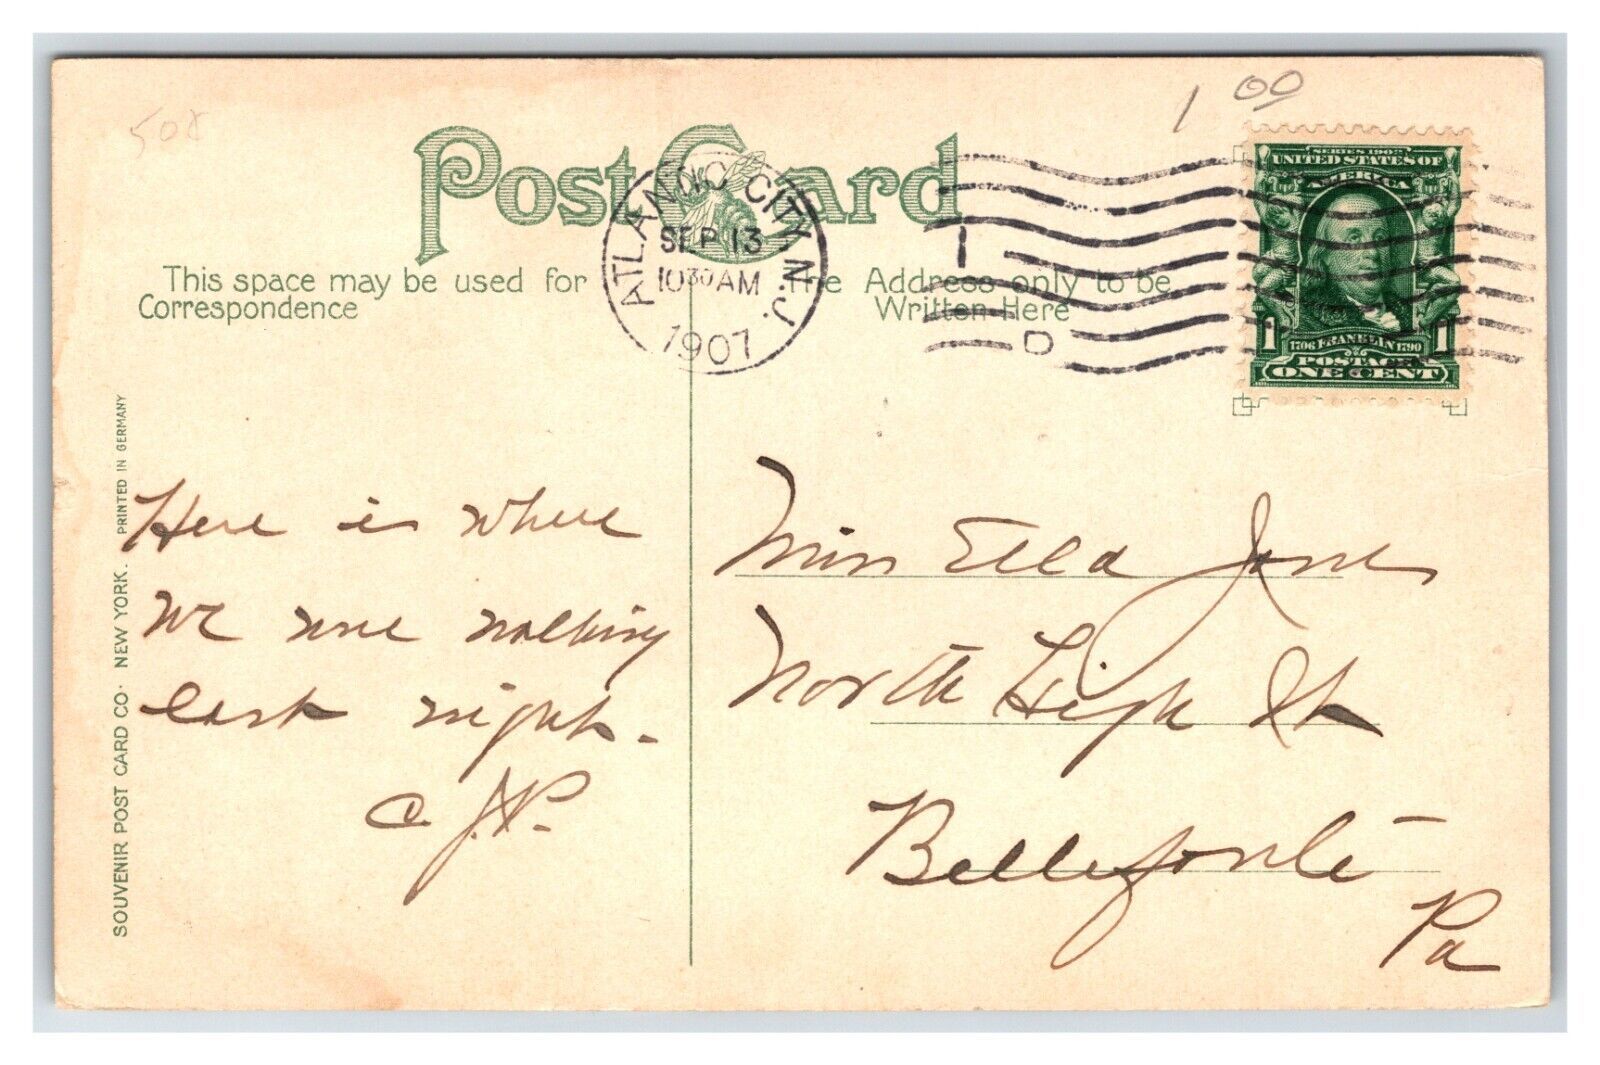 508
1 00
Post Card
This space may be used for
Correspondence
The Address only to be
Written Here
ATLANTIC CITY, N.J.
SEP 13
10 30 AM
1907
1
D
SERIES 1902
UNITED STATES OF
AMERICA
1706 FRANKLIN 1790
1 1
POSTAGE
ONE CENT
SOUVENIR POST CARD CO. NEW YORK. PRINTED IN GERMANY
Here is where
we were walking
last night.
C. J. P.
Miss Ella Jones
North High St
Bellefonte
Pa